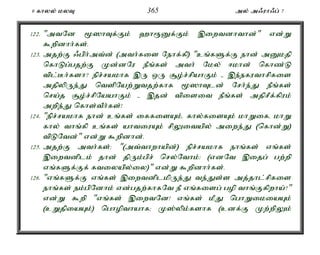 9 காலல் மலவு 365 அல் அஃராஃப் 7
122. "அவனே மூஸாவுக்கும் ஹாரூனுக்கும் இறைவனாவான்" என்று கூறினார்கள்.
123. அதற்கு ஃபிர்அவ்ன் (அவர்களை நோக்கி) "உங்களுக்கு நான் அனுமதி
கொடுப்பதற்கு முன்னரே நீங்கள் அவர் மேல் ஈமான் கொண்டு
விட்டீர்களா? நிச்சயமாக இது ஒரு சூழ்ச்சியாகும் - இந்நகரவாசிகளை
அதிலிருந்து வெளியேற்றுவதற்காக மூஸாவுடன் சேர்ந்து நீங்கள்
செய்த சூழ்ச்சியேயாகும் - இதன் விளைவை நீங்கள் அதிசீக்கிரம்
அறிந்து கொள்வீர்கள்!
124. "நிச்சயமாக நான் உங்கள் கைகளையும், கால்களையும் மாறுகை மாறு
கால் வாங்கி உங்கள் யாவரையும் சிலுவையில் அறைந்து (கொன்று)
விடுவேன்" என்று கூறினான்.
125. அதற்கு அவர்கள்: "(அவ்வாறாயின்) நிச்சயமாக நாங்கள் எங்கள்
இறைவனிடம் தான் திரும்பிச் செல்வோம்; (எனவே இதைப் பற்றி
எங்களுக்குக் கவலையில்லை)" என்று கூறினார்கள்.
126. "எங்களுக்கு எங்கள் இறைவனிடமிருந்து வந்துள்ள அத்தாட்சிகளை
நாங்கள் நம்பினோம் என்பதற்காகவே நீ எங்களைப் பழி வாங்குகிறாய்?"
என்று கூறி "எங்கள் இறைவனே! எங்கள் மீது பொறுமையையும்
(உறுதியையும்) பொழிவாயாக; முஸ்லிம்களாக (உனக்கு முற்றிலும்